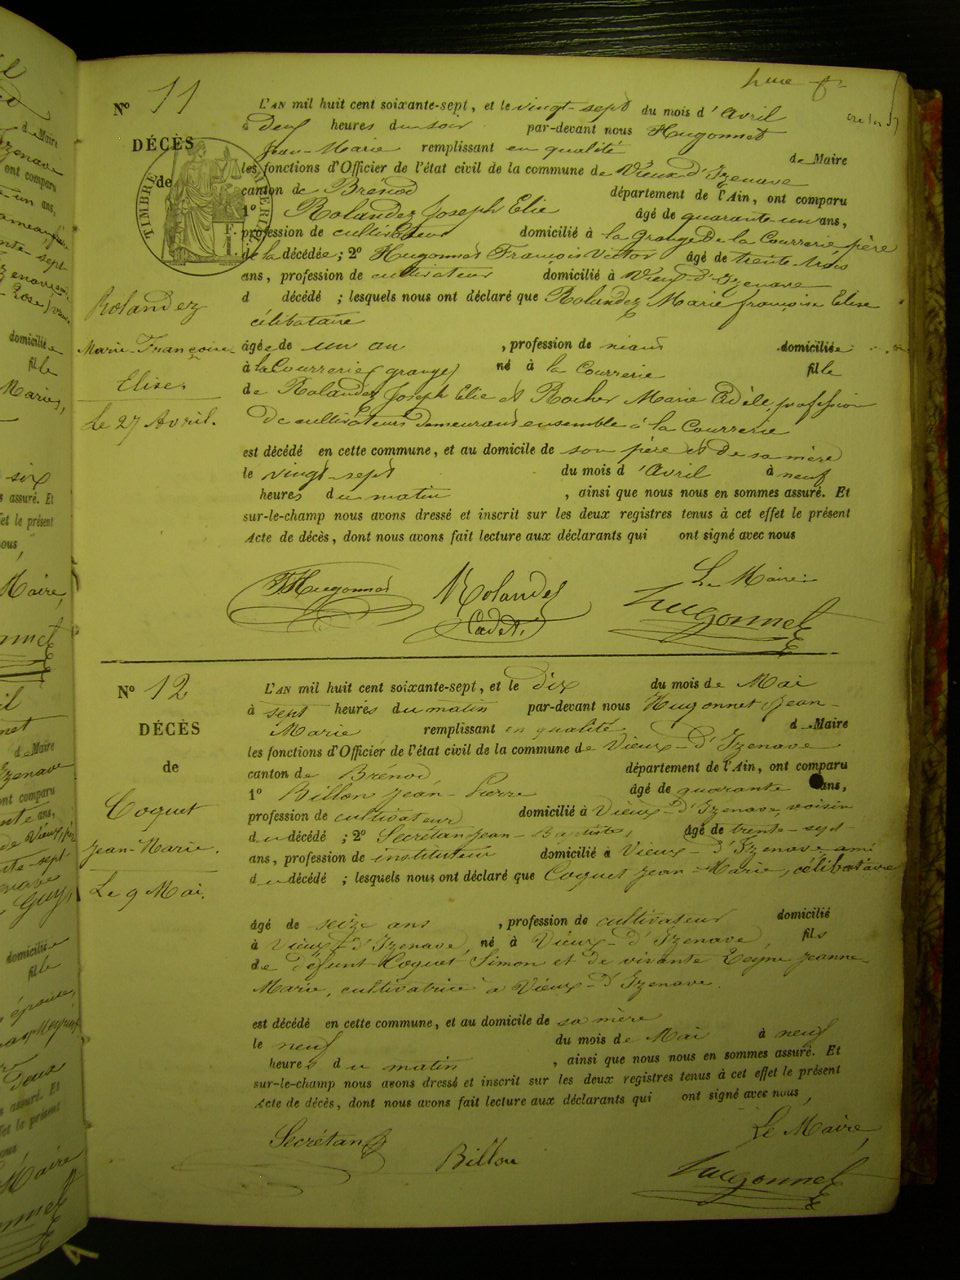 4me f.
N° 11
DÉCÈS
de
TIMBRE
Rolandez
Marie Françoise
Elise
Le 27 Avril.
L'AN mil huit cent soixante-sept, et le vingt-sept du mois d'Avril
à deux heures du soir par-devant nous Hugonnet
Jean-Marie remplissant en qualité de Maire
les fonctions d'Officier de l'état civil de la commune de Vieux-d'Izenave
canton de Brénod département de l'Ain, ont comparu
1° Rolandez Joseph Elie âgé de quarante un ans,
profession de cultivateur domicilié à la grange de la Courrerie père
de la décédée ; 2° Hugonnet François Victor âgé de trente trois
ans, profession de cultivateur domicilié à Vieux-d'Izenave
d décédé ; lesquels nous ont déclaré que Rolandez Marie françoise Elise
célibataire
âgée de un an , profession de néant domiciliée
à la Courrerie (grange) né à la Courrerie fille
de Rolandez Joseph Elie et Rocher Marie Adèle, profession
de cultivateurs demeurant ensemble à la Courrerie
est décédé en cette commune, et au domicile de son père et de sa mère
le vingt-sept du mois d'Avril à neuf
heures du matin , ainsi que nous nous en sommes assuré. Et
sur-le-champ nous avons dressé et inscrit sur les deux registres tenus à cet effet le présent
Acte de décès, dont nous avons fait lecture aux déclarants qui ont signé avec nous
Le Maire
Hugonnet Rolandez Hugonnet
Cadet
N° 12
DÉCÈS
de
Coquet
Jean-Marie.
Le 9 Mai.
L'AN mil huit cent soixante-sept, et le dix du mois de Mai
à sept heures du matin par-devant nous Hugonnet Jean-
Marie remplissant en qualité de Maire
les fonctions d'Officier de l'état civil de la commune de Vieux-d'Izenave
canton de Brénod département de l'Ain, ont comparu
1° Billon Jean-Pierre âgé de quarante ans,
profession de cultivateur domicilié à Vieux-d'Izenave, voisin
du décédé ; 2° Secrétan Jean-Baptiste, âgé de trente-sept
ans, profession de instituteur domicilié à Vieux-d'Izenave ami
du décédé ; lesquels nous ont déclaré que Coquet Jean-Marie, célibataire
âgé de seize ans , profession de cultivateur domicilié
à Vieux-d'Izenave, né à Vieux-d'Izenave, fils
de défunt Coquet Simon et de vivante Jeanne-
Marie, cultivatrice à Vieux-d'Izenave.
est décédé en cette commune, et au domicile de sa mère
le neuf du mois de Mai à neuf
heures du matin , ainsi que nous nous en sommes assuré. Et
sur-le-champ nous avons dressé et inscrit sur les deux registres tenus à cet effet le présent
Acte de décès, dont nous avons fait lecture aux déclarants qui ont signé avec nous,
Le Maire,
Secrétan Billon Hugonnet